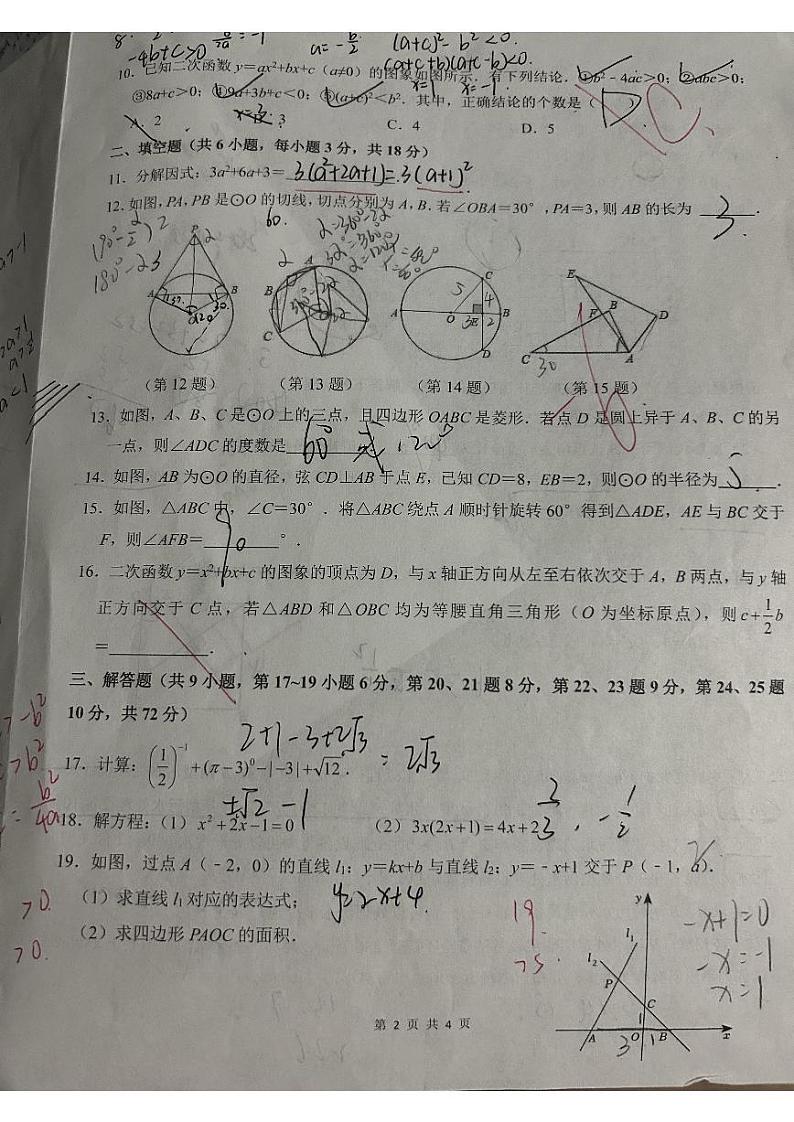 -4b+c>0
a=-b/2
(a+c)²-b²<0.
(a+c+b)(a+c-b)<0.
x=1 x=-1
10．已知二次函数 y＝ax²+bx+c（a≠0）的图象如图所示．有下列结论．①b²﹣4ac>0；②abc>0；
③8a+c>0；④9a+3b+c<0；⑤(a+c)²<b²．其中，正确结论的个数是（ D ）． C.
A．2 3 C．4 D．5
二、填空题（共 6 小题，每小题 3 分，共 18 分）
11．分解因式：3a²+6a+3＝ 3(a²+2a+1)=3(a+1)²
12．如图，PA，PB 是⊙O 的切线，切点分别为 A，B．若∠OBA＝30°，PA＝3，则 AB 的长为 3 ．
60.
P A B 30
A B C
A B C D E O 5 4 3 2
E F B D C A 30
（第 12 题） （第 13 题） （第 14 题） （第 15 题）
13．如图，A、B、C 是⊙O 上的三点，且四边形 OABC 是菱形．若点 D 是圆上异于 A、B、C 的另
一点，则∠ADC 的度数是 60°或120°
14．如图，AB 为⊙O 的直径，弦 CD⊥AB 于点 E，已知 CD＝8，EB＝2，则⊙O 的半径为 5 ．
15．如图，△ABC 中，∠C＝30°．将△ABC 绕点 A 顺时针旋转 60°得到△ADE，AE 与 BC 交于
F，则∠AFB＝ 90 °．
16．二次函数 y＝x²+bx+c 的图象的顶点为 D，与 x 轴正方向从左至右依次交于 A，B 两点，与 y 轴
正方向交于 C 点，若△ABD 和△OBC 均为等腰直角三角形（O 为坐标原点），则 c+1/2b
＝________．
三、解答题（共 9 小题，第 17~19 小题 6 分，第 20、21 题 8 分，第 22、23 题 9 分，第 24、25 题
10 分，共 72 分）
2+1-3+2√3
17．计算：(1/2)⁻¹+(π－3)⁰－|－3|+√12． =2√3
±√2 -1
18．解方程：（1）x²+2x-1=0 （2）3x(2x+1)＝4x+2 2/3，-1/2
19．如图，过点 A（﹣2，0）的直线 l₁：y＝kx+b 与直线 l₂：y＝﹣x+1 交于 P（﹣1，a）．
（1）求直线 l₁ 对应的表达式； y=2x+4
（2）求四边形 PAOC 的面积．
>0
>0.
-x+1=0
-x=-1
x=1
y l₁ l₂ P C 1 A O B x 3 1
第 2 页 共 4 页